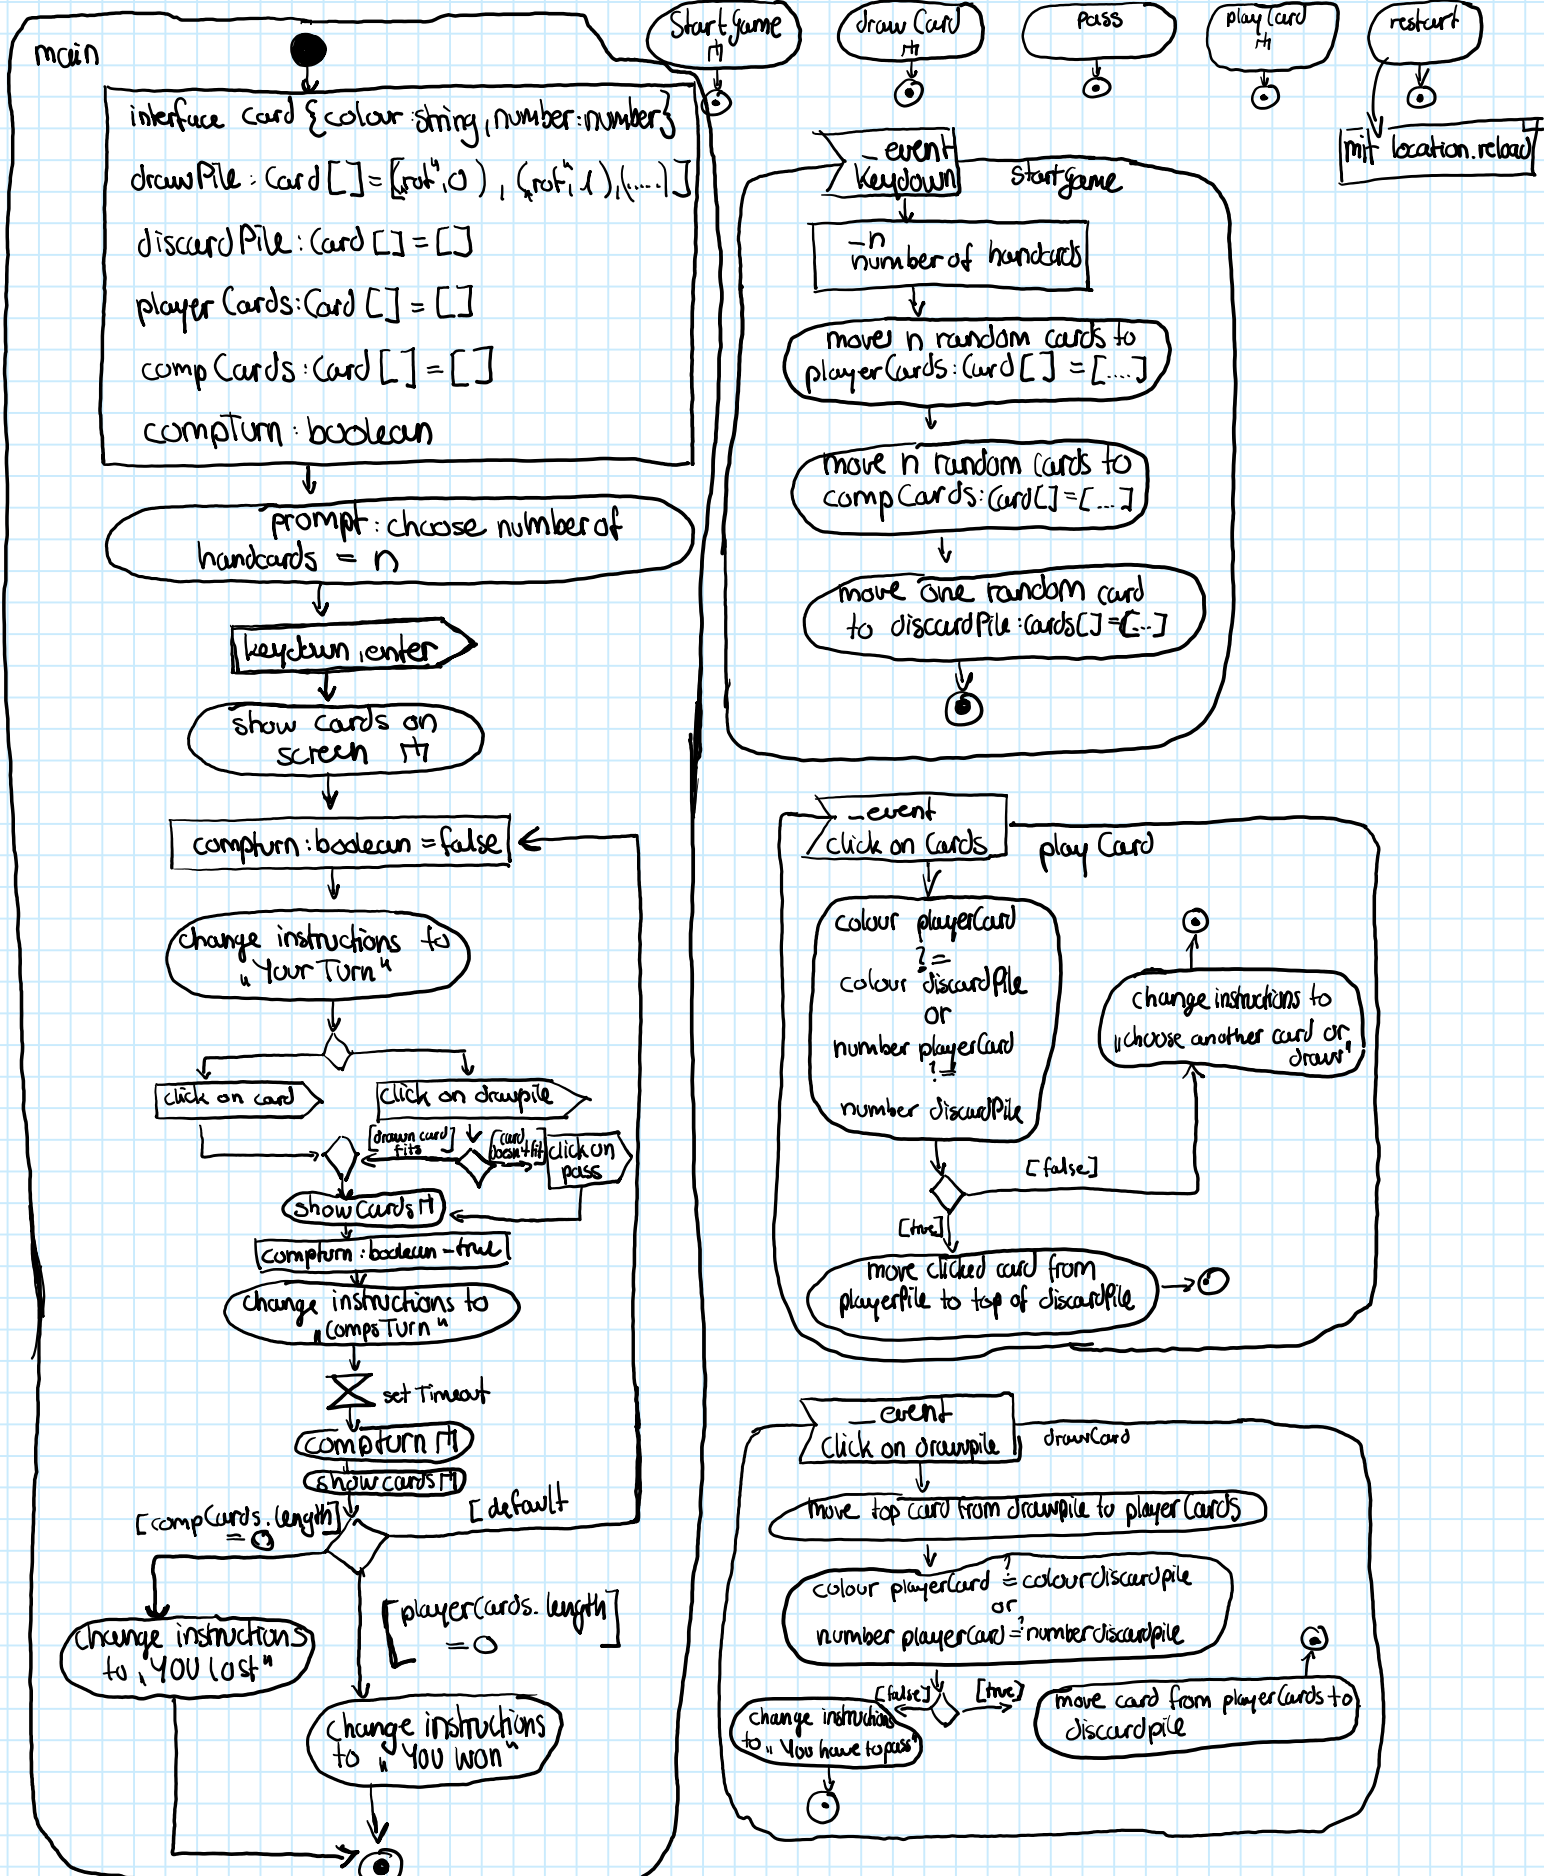 main
interface Card {colour:string, number:number}
drawPile: Card[] = [(„rot", 0), („rot", 1), (.....)]
discardPile: Card[] = []
playerCards: Card[] = []
compCards: Card[] = []
compTurn: boolean
prompt: choose number of
handcards = n
keydown, enter
show cards on
screen
compturn: boolean = false
change instructions to
„Your Turn"
click on card
click on drawpile
[drawn card
fits]
[card
doesn't fit]
click on
pass
showCards
compturn: boolean = true
change instructions to
„CompsTurn"
set Timeout
compturn
showcards
[compCards.length]
= 0
[default
change instructions
to „YOU lost"
[playerCards.length]
= 0
change instructions
to „YOU WON"
StartGame
draw Card
pass
playCard
restart
init location.reload
_event
Keydown
StartGame
_n
number of handcards
moves n random cards to
playerCards: Card[] = [....]
move n random cards to
compCards: Card[] = [...]
move one random card
to discardPile: Cards[] = [...]
_event
click on Cards
play Card
colour playerCard
?=
colour discardPile
or
number playerCard
?=
number discardPile
[false]
[true]
change instructions to
„choose another card or
draw"
move clicked card from
playerPile to top of discardPile
_event
click on drawpile
drawCard
move top card from drawpile to playerCards
colour playerCard ?= colour discardpile
or
number playerCard ?= number discardpile
[false]
[true]
change instructions
to „You have to pass"
move card from playerCards to
discardpile